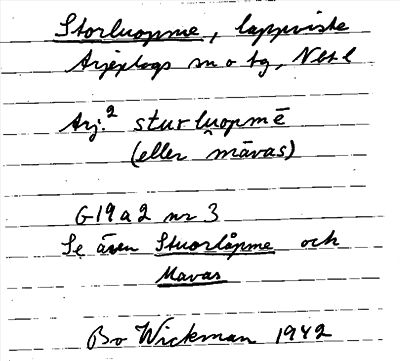 Storluopme, lappviste
Arjeplogs sn o tg, Nbt l
Arj.² sturluopmē
(eller māvas)
G19a2 nr 3
Se även Stuorlåpme och
Mavas
Bo Wickman 1942